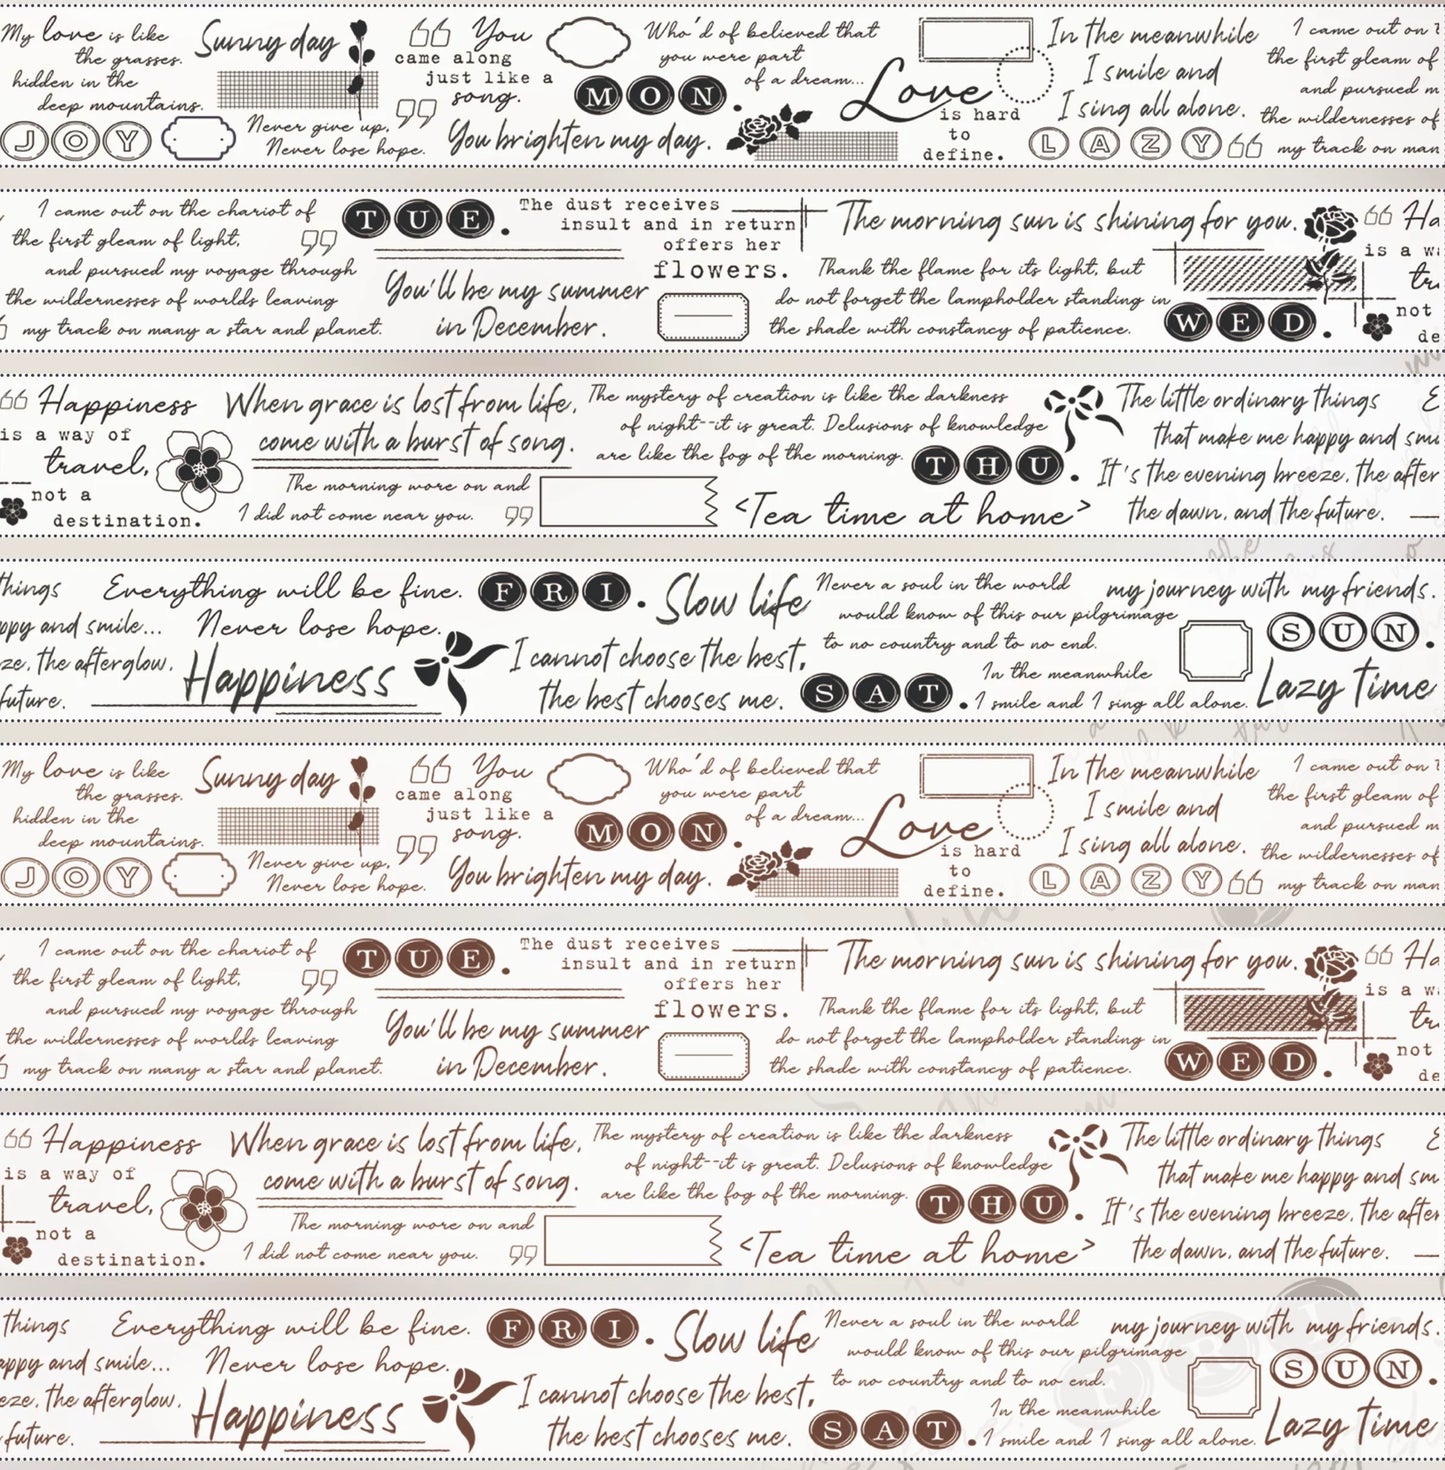 My love is like
the grasses.
hidden in the
deep mountains.
JOY
Sunny day
Never give up,
Never lose hope.
“ You
came along
just like a
song. ”
You brighten my day.
MON.
Who'd of believed that
you were part
of a dream...
Love
is hard
to
define.
In the meanwhile
I smile and
I sing all alone.
LAZY
I came out on t
the first gleam of
and pursued m
the wildernesses of
“ my track on man
I came out on the chariot of
the first gleam of light, ”
and pursued my voyage through
the wildernesses of worlds leaving
my track on many a star and planet.
TUE.
You'll be my summer
in December.
The dust receives
insult and in return
offers her
flowers.
The morning sun is shining for you.
Thank the flame for its light, but
do not forget the lampholder standing in
the shade with constancy of patience.
WED.
“ Ha
is a w
tr
not
de
“ Happiness
is a way of
travel,
not a
destination.
When grace is lost from life,
come with a burst of song.
The morning wore on and
I did not come near you. ”
The mystery of creation is like the darkness
of night--it is great. Delusions of knowledge
are like the fog of the morning.
THU.
<Tea time at home>
The little ordinary things
that make me happy and smi
It's the evening breeze, the after
the dawn, and the future.
E
things
ppy and smile...
ze, the afterglow,
future.
Everything will be fine.
Never lose hope.
Happiness
FRI.
Slow life
I cannot choose the best,
the best chooses me.
SAT.
Never a soul in the world
would know of this our pilgrimage
to no country and to no end.
In the meanwhile
I smile and I sing all alone.
my journey with my friends.
SUN.
Lazy Time
My love is like
the grasses.
hidden in the
deep mountains.
JOY
Sunny day
Never give up,
Never lose hope.
“ You
came along
just like a
song. ”
You brighten my day.
MON.
Who'd of believed that
you were part
of a dream...
Love
is hard
to
define.
In the meanwhile
I smile and
I sing all alone.
LAZY
I came out on t
the first gleam of
and pursued m
the wildernesses of
“ my track on man
I came out on the chariot of
the first gleam of light, ”
and pursued my voyage through
the wildernesses of worlds leaving
my track on many a star and planet.
TUE.
You'll be my summer
in December.
The dust receives
insult and in return
offers her
flowers.
The morning sun is shining for you.
Thank the flame for its light, but
do not forget the lampholder standing in
the shade with constancy of patience.
WED.
“ Ha
is a w
tr
not
de
“ Happiness
is a way of
travel,
not a
destination.
When grace is lost from life,
come with a burst of song.
The morning wore on and
I did not come near you. ”
The mystery of creation is like the darkness
of night--it is great. Delusions of knowledge
are like the fog of the morning.
THU.
<Tea time at home>
The little ordinary things
that make me happy and sm
It's the evening breeze, the after
the dawn, and the future.
E
things
appy and smile...
eze, the afterglow,
future.
Everything will be fine.
Never lose hope.
Happiness
FRI.
Slow life
I cannot choose the best,
the best chooses me.
SAT.
Never a soul in the world
would know of this our pilgrimage
to no country and to no end.
In the meanwhile
I smile and I sing all alone.
my journey with my friends.
SUN.
Lazy Time